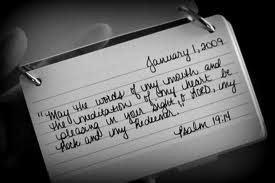 January 1, 2009
"May the words of my mouth and
the meditation of my heart be
pleasing in your sight, O LORD, my
Rock and my Redeemer."
Psalm 19:14